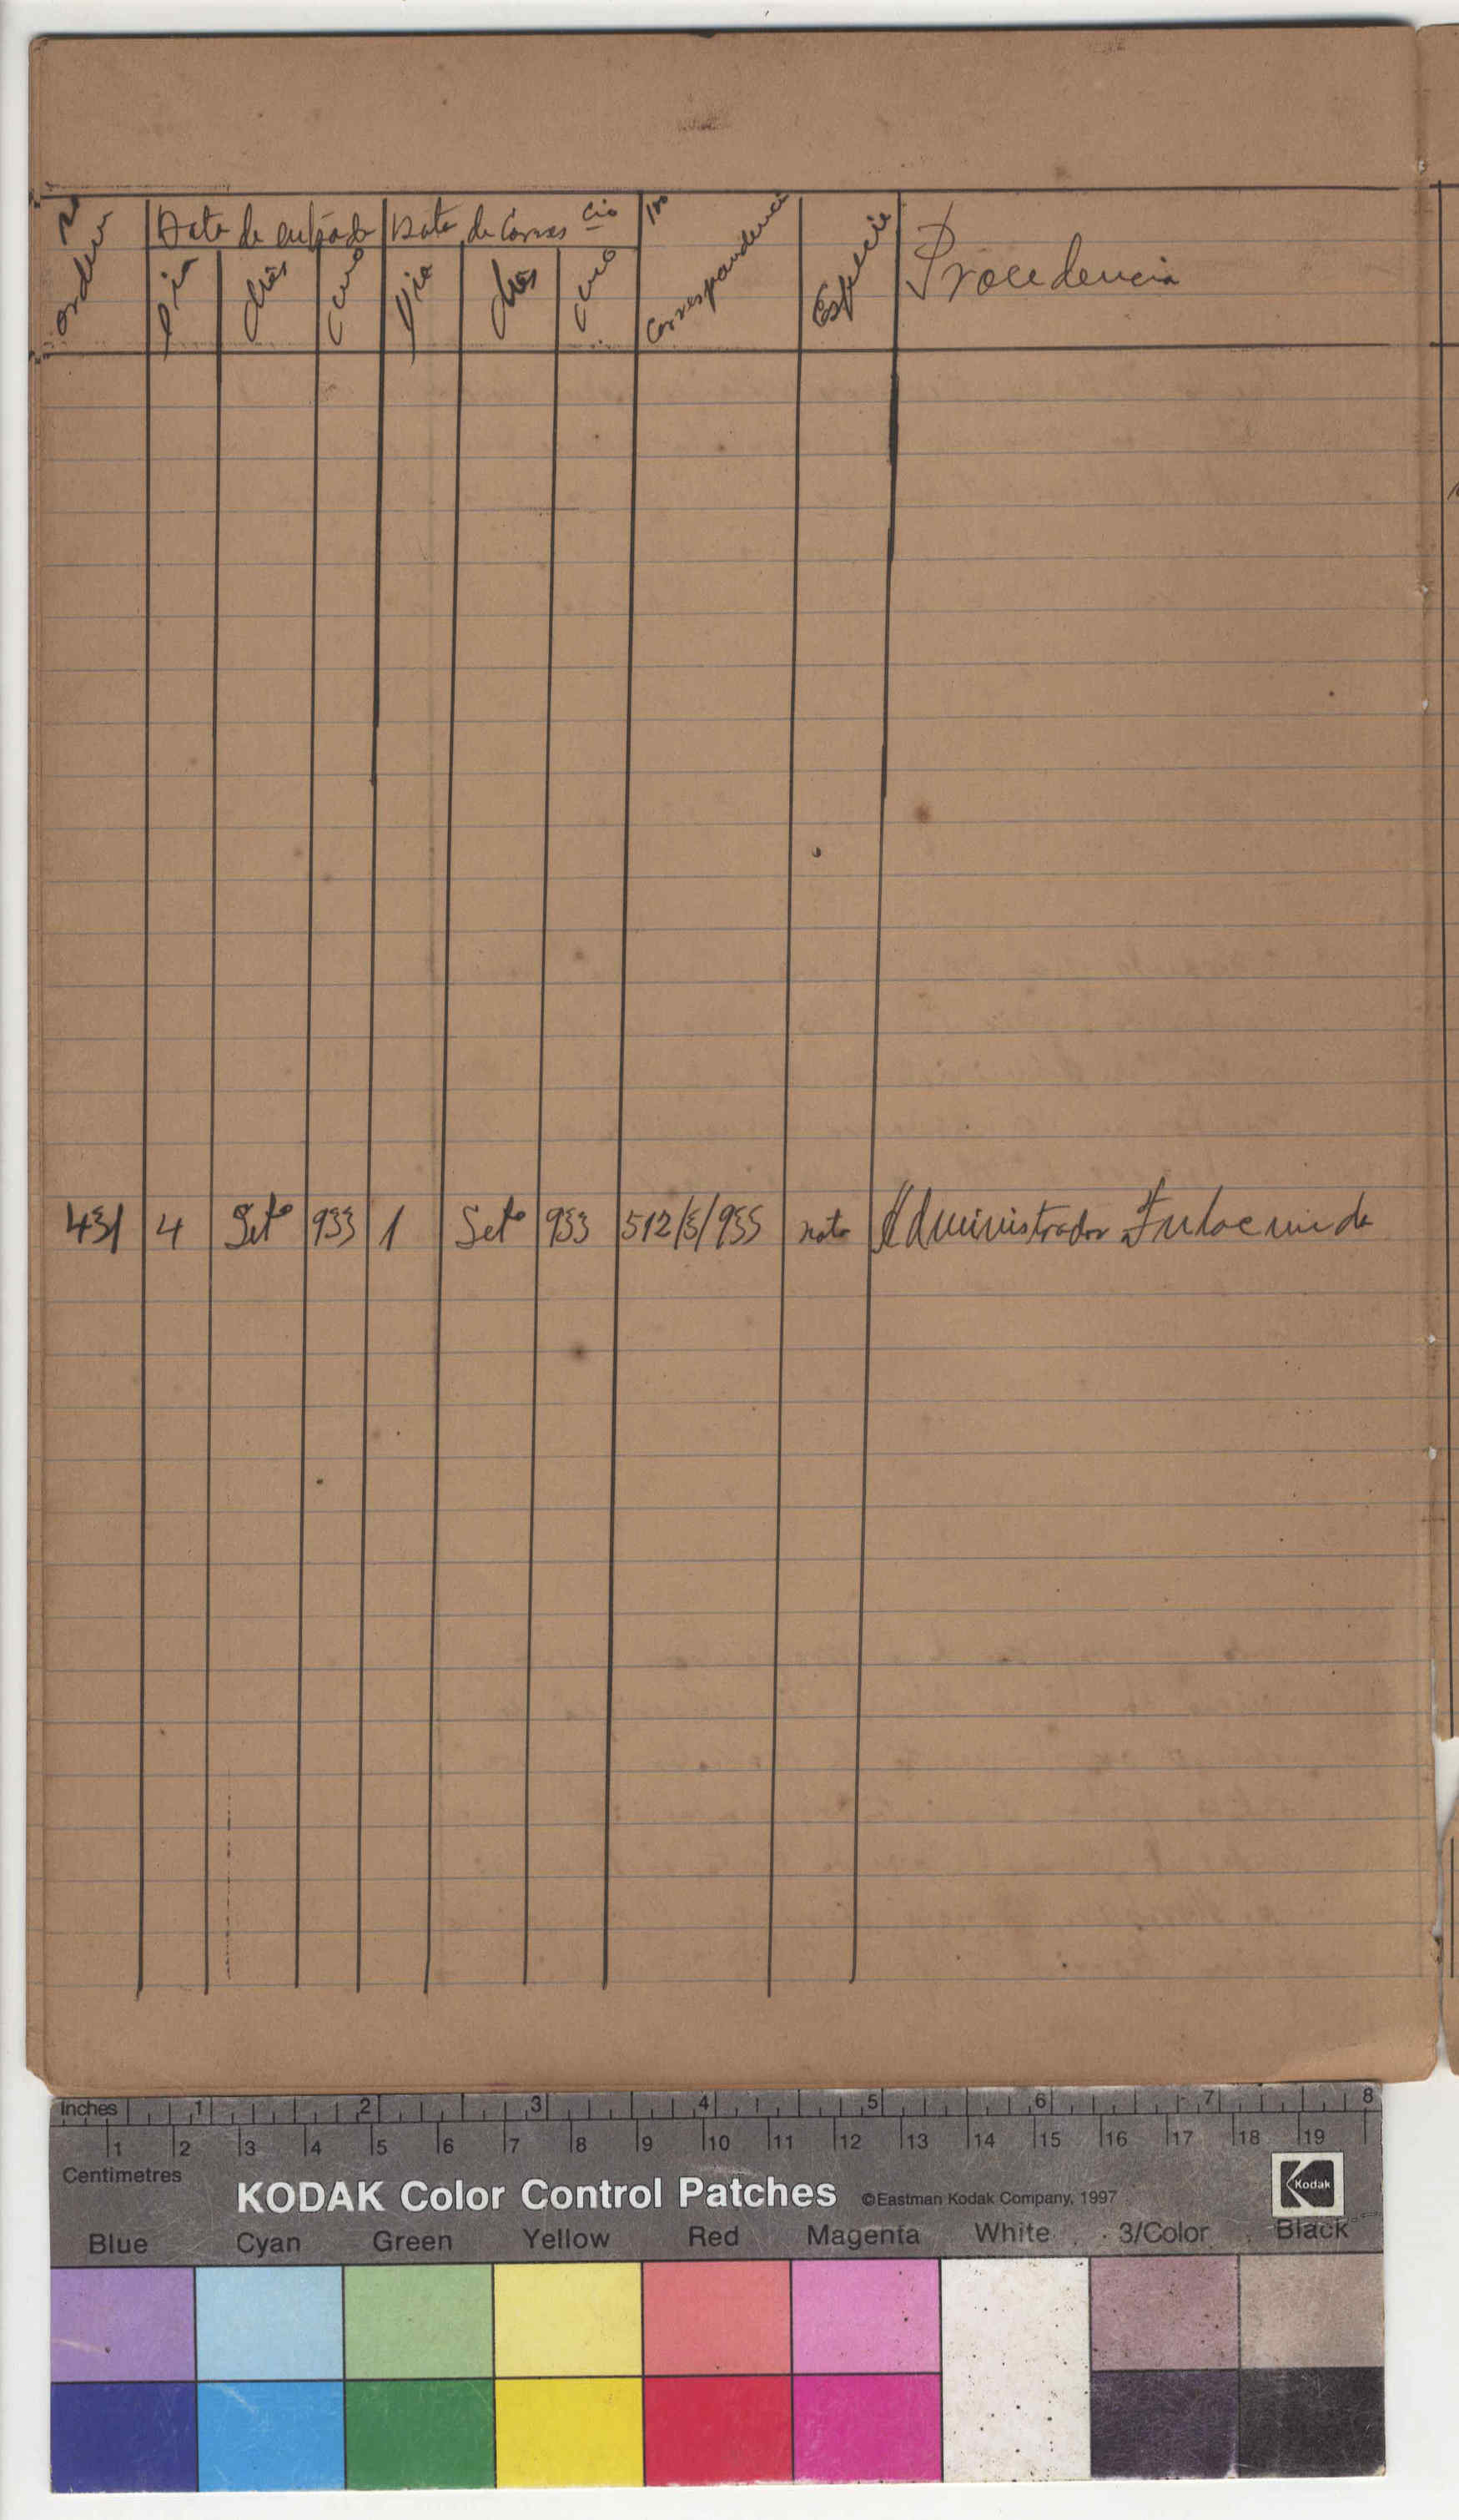 Nº ordem
Data de entrada
Data de Corres cia
Dia Mês Ano Dia Mês Ano
Nº Correspondencia
Especie
Procedencia
431 4 Setº 933 1 Setº 933 512/5/933 nota Administrador
Inches 1 2 3 4 5 6 7 8
1 2 3 4 5 6 7 8 9 10 11 12 13 14 15 16 17 18 19
Centimetres
KODAK Color Control Patches ©Eastman Kodak Company, 1997 Kodak
Blue Cyan Green Yellow Red Magenta White 3/Color Black